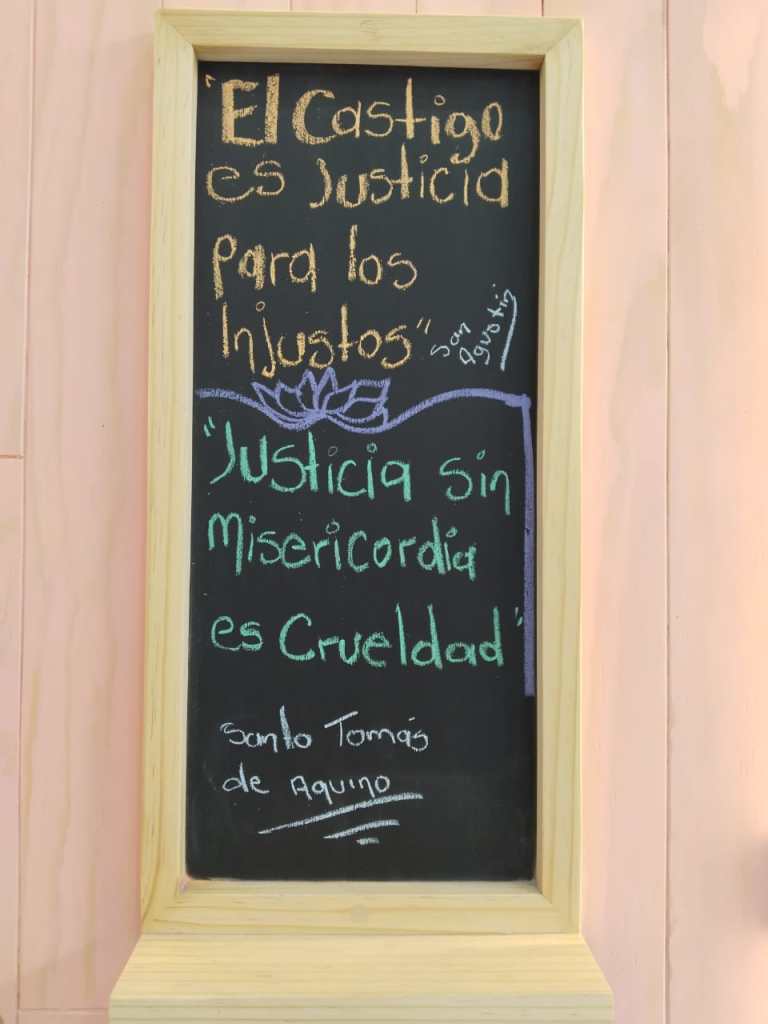 "El Castigo
es Justicia
para los
Injustos"
San
Agustín
"Justicia sin
Misericordia
es Crueldad"
Santo Tomás
de Aquino